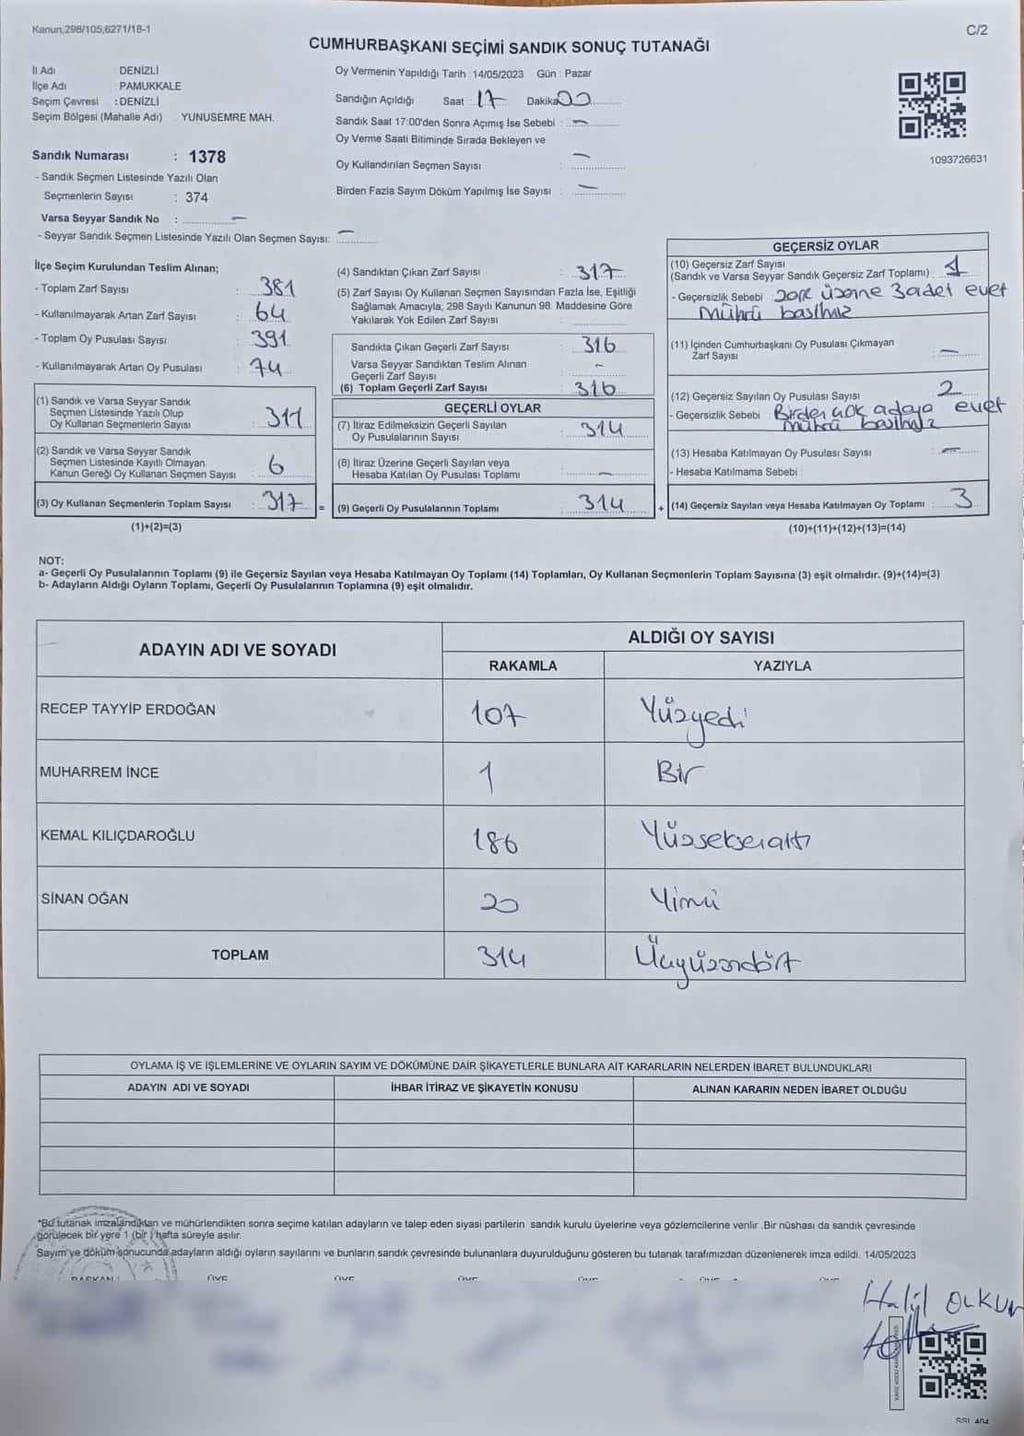 Kanun,298/105,6271/18-1
C/2
CUMHURBAŞKANI SEÇİMİ SANDIK SONUÇ TUTANAĞI
İl Adı DENİZLİ
İlçe Adı PAMUKKALE
Seçim Çevresi : DENİZLİ
Seçim Bölgesi (Mahalle Adı) YUNUSEMRE MAH.
Sandık Numarası : 1378
- Sandık Seçmen Listesinde Yazılı Olan
Seçmenlerin Sayısı : 374
Varsa Seyyar Sandık No : -
- Seyyar Sandık Seçmen Listesinde Yazılı Olan Seçmen Sayısı: -
Oy Vermenin Yapıldığı Tarih : 14/05/2023 Gün : Pazar
Sandığın Açıldığı Saat 17 Dakika 00
Sandık Saat 17:00'den Sonra Açımış İse Sebebi : -
Oy Verme Saati Bitiminde Sırada Bekleyen ve
Oy Kullandırılan Seçmen Sayısı : -
Birden Fazla Sayım Döküm Yapılmış İse Sayısı : -
1093726631
İlçe Seçim Kurulundan Teslim Alınan;
- Toplam Zarf Sayısı : 381
- Kullanılmayarak Artan Zarf Sayısı : 64
- Toplam Oy Pusulası Sayısı : 391
- Kullanılmayarak Artan Oy Pusulası : 74
(1) Sandık ve Varsa Seyyar Sandık
Seçmen Listesinde Yazılı Olup
Oy Kullanan Seçmenlerin Sayısı : 311
(2) Sandık ve Varsa Seyyar Sandık
Seçmen Listesinde Kayıtlı Olmayan
Kanun Gereği Oy Kullanan Seçmen Sayısı : 6
(3) Oy Kullanan Seçmenlerin Toplam Sayısı : 317
(1)+(2)=(3)
(4) Sandıktan Çıkan Zarf Sayısı : 317
(5) Zarf Sayısı Oy Kullanan Seçmen Sayısından Fazla İse, Eşitliği
Sağlamak Amacıyla, 298 Sayılı Kanunun 98. Maddesine Göre
Yakılarak Yok Edilen Zarf Sayısı :
Sandıkta Çıkan Geçerli Zarf Sayısı : 316
Varsa Seyyar Sandıktan Teslim Alınan
Geçerli Zarf Sayısı : -
(6) Toplam Geçerli Zarf Sayısı : 316
GEÇERLİ OYLAR
(7) İtiraz Edilmeksizin Geçerli Sayılan
Oy Pusulalarının Sayısı : 314
(8) İtiraz Üzerine Geçerli Sayılan veya
Hesaba Katılan Oy Pusulası Toplamı : -
= (9) Geçerli Oy Pusulalarının Toplamı : 314
GEÇERSİZ OYLAR
(10) Geçersiz Zarf Sayısı
(Sandık ve Varsa Seyyar Sandık Geçersiz Zarf Toplamı) : 1
- Geçersizlik Sebebi : Zarf üzerine 3 adet evet
mührü basılmış
(11) İçinden Cumhurbaşkanı Oy Pusulası Çıkmayan
Zarf Sayısı : -
(12) Geçersiz Sayılan Oy Pusulası Sayısı : 2
- Geçersizlik Sebebi : Birden çok adaya evet
mührü basılmış
(13) Hesaba Katılmayan Oy Pusulası Sayısı : -
- Hesaba Katılmama Sebebi :
+ (14) Geçersiz Sayılan veya Hesaba Katılmayan Oy Toplamı : 3
(10)+(11)+(12)+(13)=(14)
NOT:
a- Geçerli Oy Pusulalarının Toplamı (9) ile Geçersiz Sayılan veya Hesaba Katılmayan Oy Toplamı (14) Toplamları, Oy Kullanan Seçmenlerin Toplam Sayısına (3) eşit olmalıdır. (9)+(14)=(3)
b- Adayların Aldığı Oyların Toplamı, Geçerli Oy Pusulalarının Toplamına (9) eşit olmalıdır.
ADAYIN ADI VE SOYADI
ALDIĞI OY SAYISI
RAKAMLA YAZIYLA
RECEP TAYYİP ERDOĞAN 107 Yüzyedi
MUHARREM İNCE 1 Bir
KEMAL KILIÇDAROĞLU 186 Yüzseksenaltı
SİNAN OĞAN 20 Yirmi
TOPLAM 314 Üçyüzondört
OYLAMA İŞ VE İŞLEMLERİNE VE OYLARIN SAYIM VE DÖKÜMÜNE DAİR ŞİKAYETLERLE BUNLARA AİT KARARLARIN NELERDEN İBARET BULUNDUKLARI
ADAYIN ADI VE SOYADI İHBAR İTİRAZ VE ŞİKAYETİN KONUSU ALINAN KARARIN NEDEN İBARET OLDUĞU
*Bu tutanak imzalandıktan ve mühürlendikten sonra seçime katılan adayların ve talep eden siyasi partilerin sandık kurulu üyelerine veya gözlemcilerine verilir .Bir nüshası da sandık çevresinde
görülecek bir yere 1 (bir ) hafta süreyle asılır.
Sayım ve döküm sonucunda adayların aldığı oyların sayılarını ve bunların sandık çevresinde bulunanlara duyurulduğunu gösteren bu tutanak tarafımızdan düzenlenerek imza edildi. 14/05/2023
BAŞKAN ÜYE ÜYE ÜYE ÜYE ÜYE ÜYE
Halil OLKUN